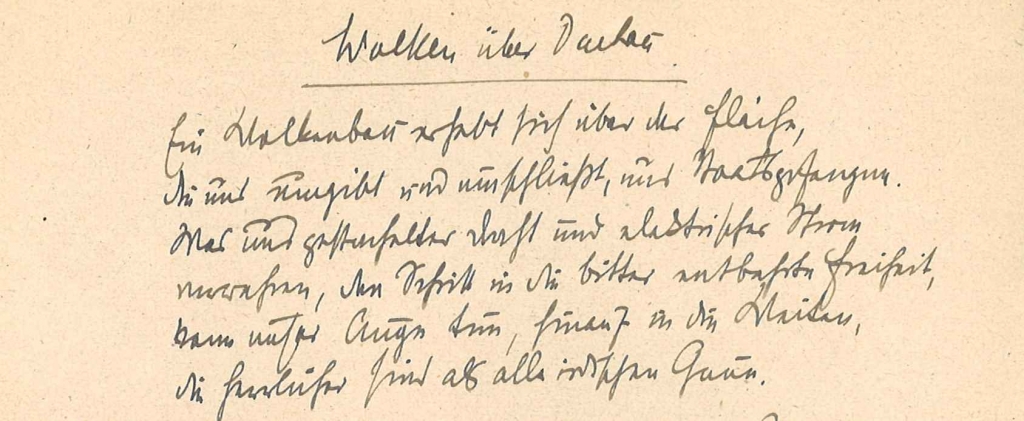 Wolken über Dachau.
Ein Wolkenbau erhebt sich über der Fläche,
die uns umgibt und umschließt, uns Staatsgefangene.
Was uns gestachelter Draht und elektrischer Strom
verwehren, den Schritt in die bitter entbehrte Freiheit,
kann unser Auge tun, hinauf in die Weiten,
die herrlicher sind als alle irdischen Gaue.